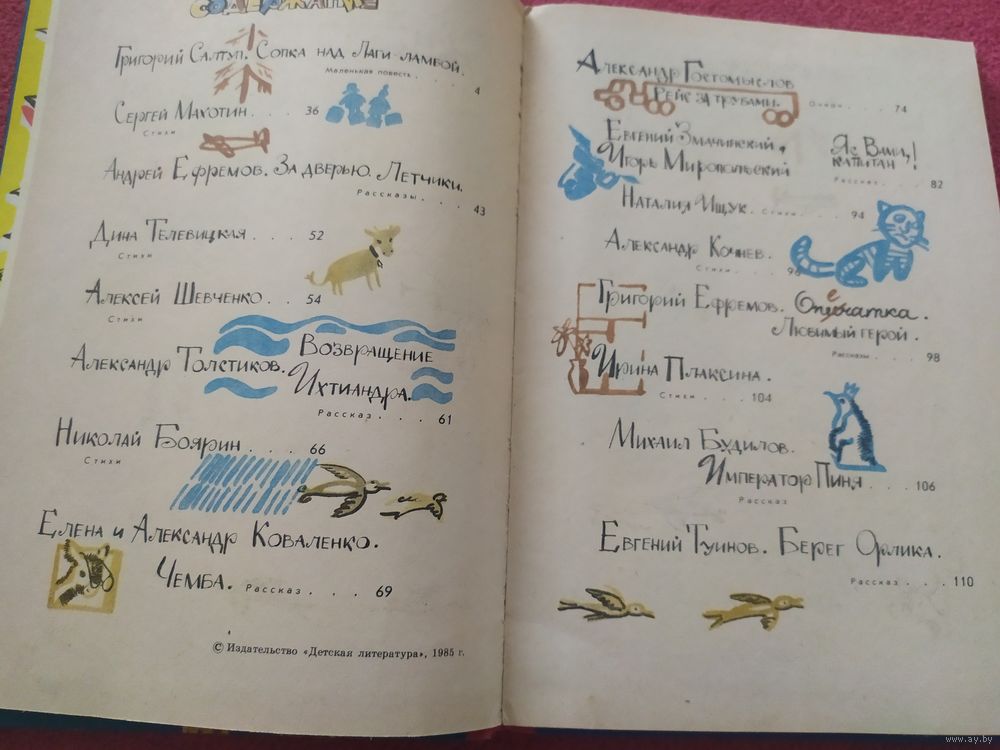 СОДЕРЖАНИЕ
Григорий Салтуп. Сопка над Лаги-ламбой.
Маленькая повесть . . . . 4
Сергей Махотин . . . 36
Стихи
Андрей Ефремов. За дверью. Летчики.
Рассказы . . . . 43
Дина Телевицкая . . . 52
Стихи
Алексей Шевченко . . 54
Стихи
Александр Толстиков. Возвращение
Ихтиандра.
Рассказ . . . . 61
Николай Боярин . . . 66
Стихи
Елена и Александр Коваленко.
Чемба. Рассказ . . . . 69
© Издательство «Детская литература», 1985 г.
Александр Гостомыслов
Рейс за трубами. Очерк . . . . 74
Евгений Змачинский, Яс Вами,
Игорь Миропольский капитан!
Рассказ . . . . 82
Наталия Ищук. Стихи . . . . 94
Александр Кочнев.
Стихи . . . . 96
Григорий Ефремов. Опечатка.
Любимый герой.
Рассказы . . . . 98
Ирина Плаксина.
Стихи . . . . 104
Михаил Будилов.
Император Пиня . . . . 106
Рассказ
Евгений Туинов. Берег Орлика.
Рассказ . . . . 110
www.ay.by